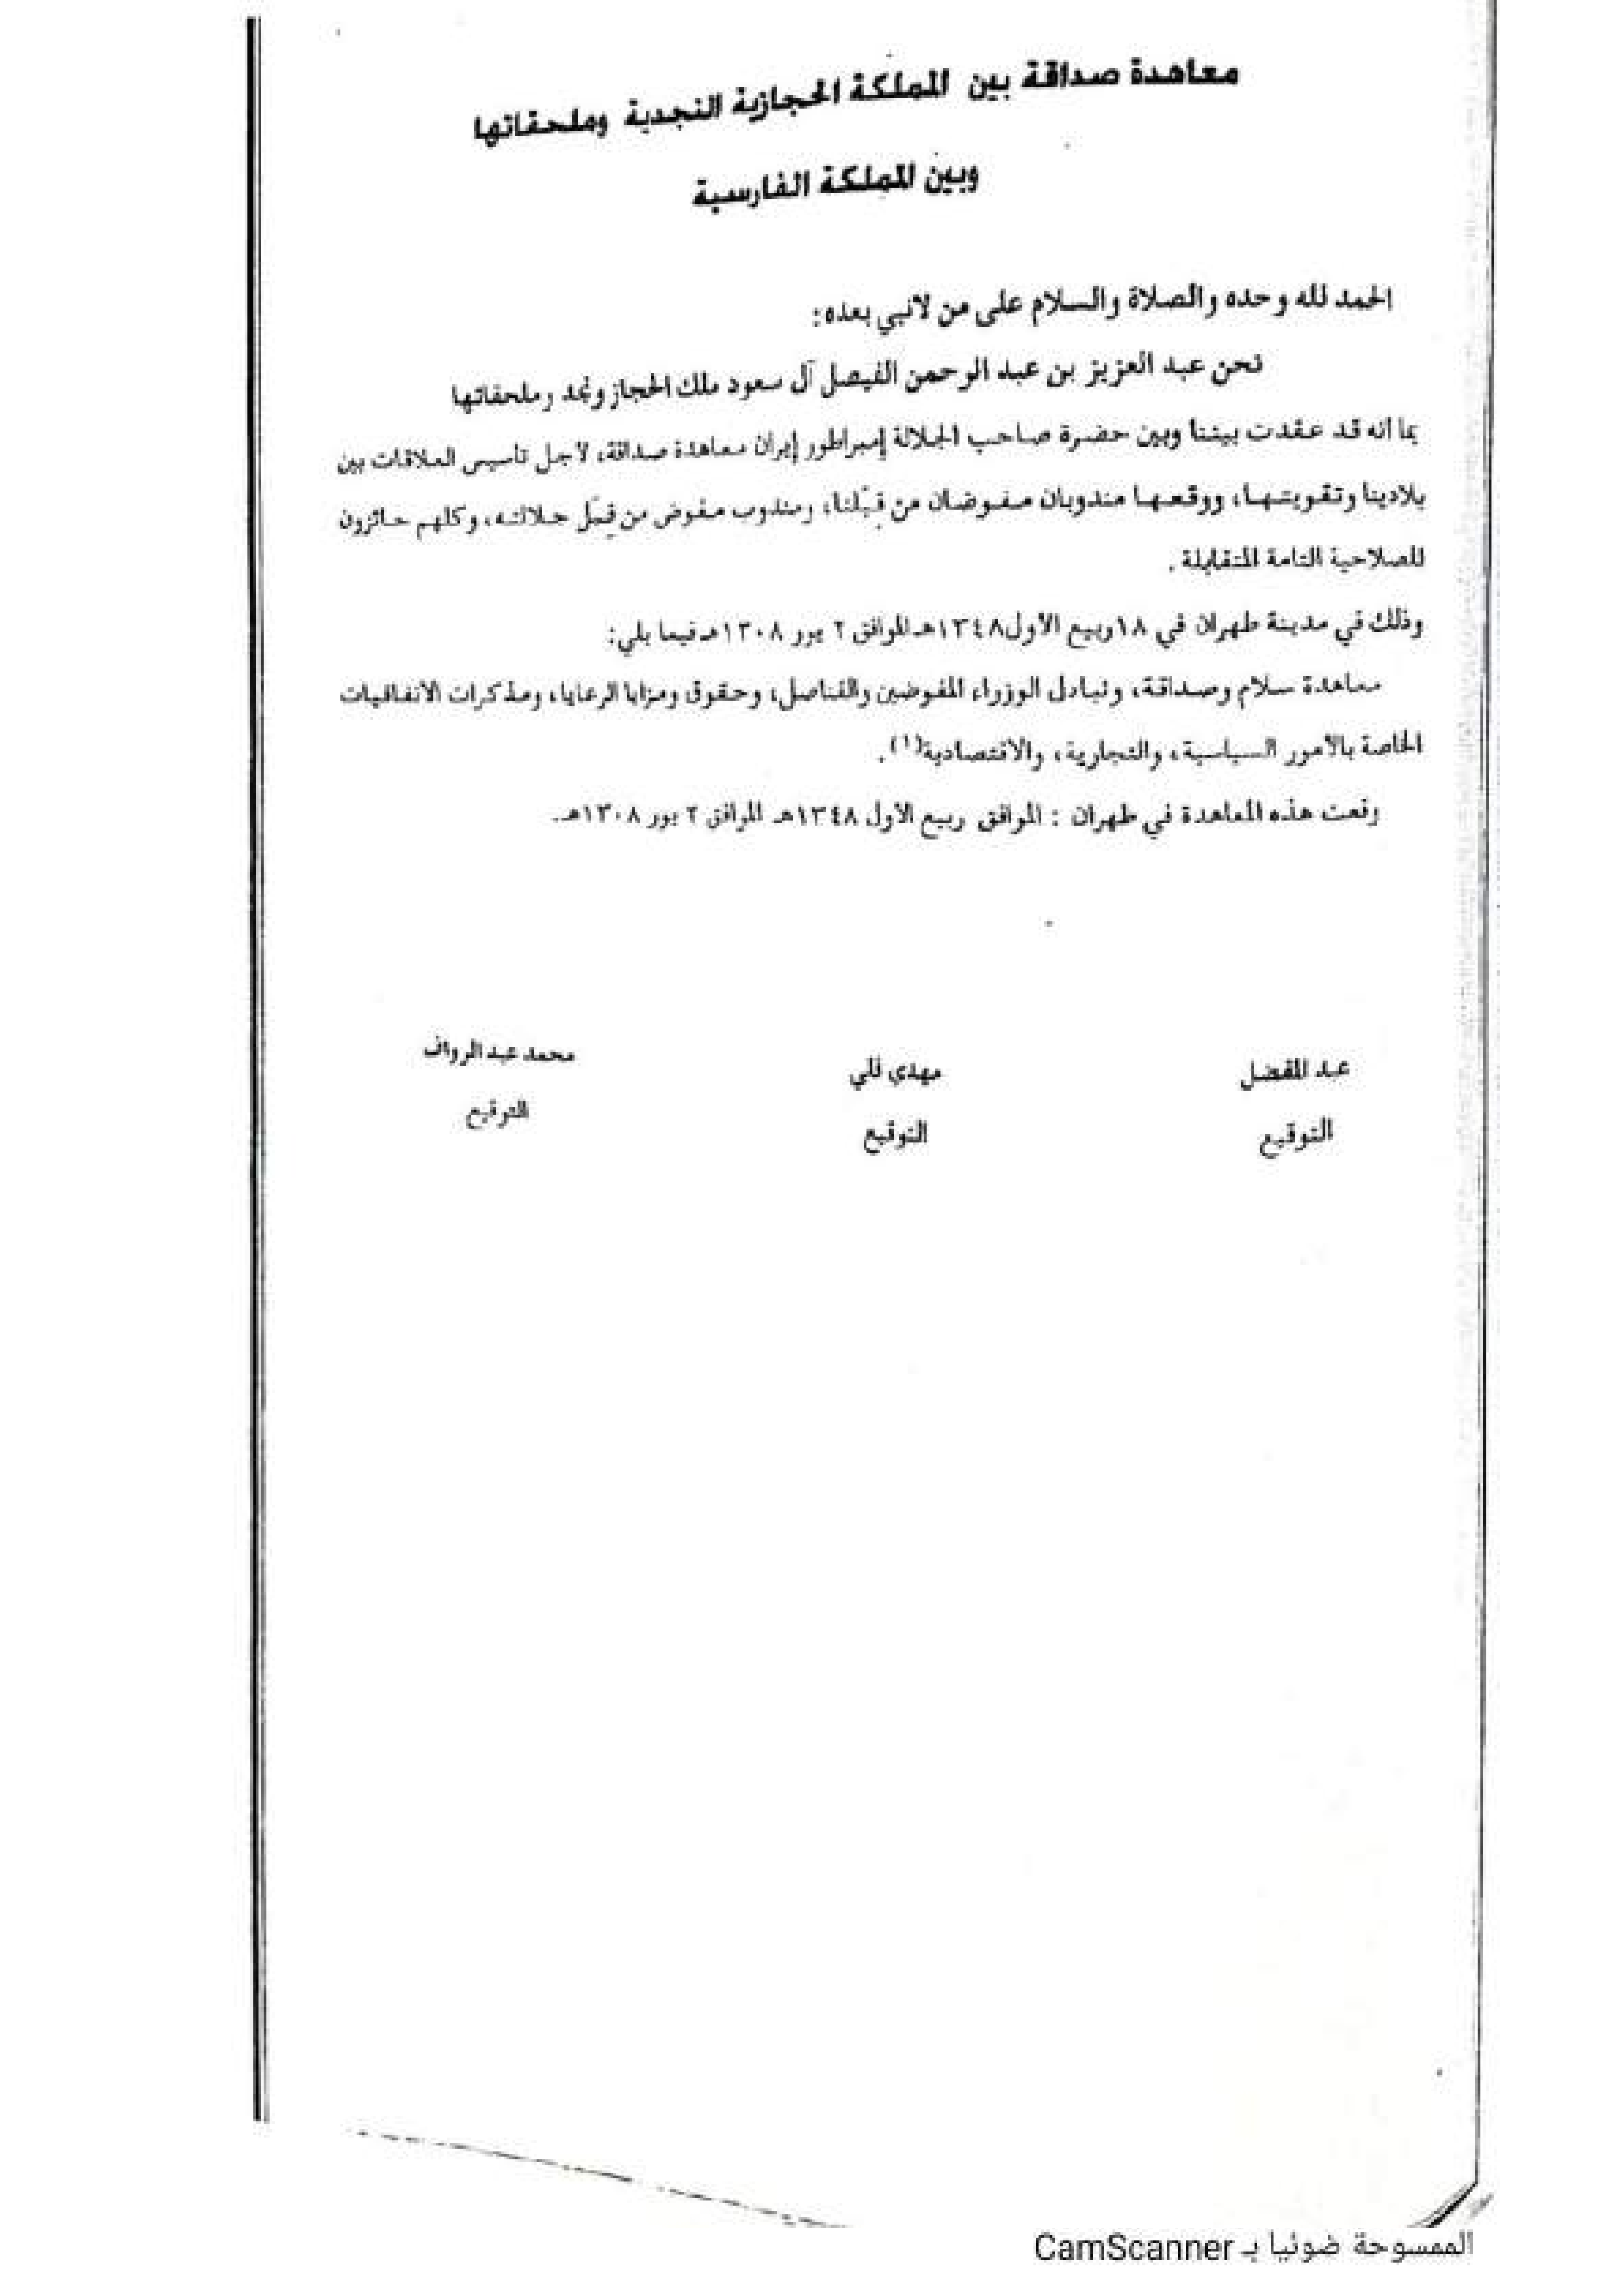 معاهدة صداقة بين المملكة الحجازية النجدية وملحقاتها
وبين المملكة الفارسية
الحمد لله وحده والصلاة والسلام على من لانبي بعده:
نحن عبد العزيز بن عبد الرحمن الفيصل آل سعود ملك الحجاز ونجد وملحقاتها
بما انه قد عقدت بيننا وبين حضرة صاحب الجلالة إمبراطور إيران معاهدة صداقة، لاجل تاسيس العلاقات بين
بلادينا وتقويتها، ووقعها مندوبان مفوضان من قِبَلنا، ومندوب مفوض من قِبَل جلالته، وكلهم حائزون
للصلاحية التامة المتقابلة .
وذلك في مدينة طهران في ١٨ربيع الاول١٣٤٨هـ الموافق ٢ يور ١٣٠٨هـ فيما يلي:
معاهدة سلام وصداقة، وتبادل الوزراء المفوضين والقناصل، وحقوق ومزايا الرعايا، ومذكرات الاتفاقيات
الخاصة بالامور السياسية، والتجارية، والاقتصادية(١) .
وقعت هذه المعاهدة في طهران : الموافق ربيع الاول ١٣٤٨هـ الموافق ٢ يور ١٣٠٨هـ.
عبد المفضل مهدي قلي محمد عبد الرواف
التوقيع التوقيع التوقيع
الممسوحة ضوئيا بـ CamScanner